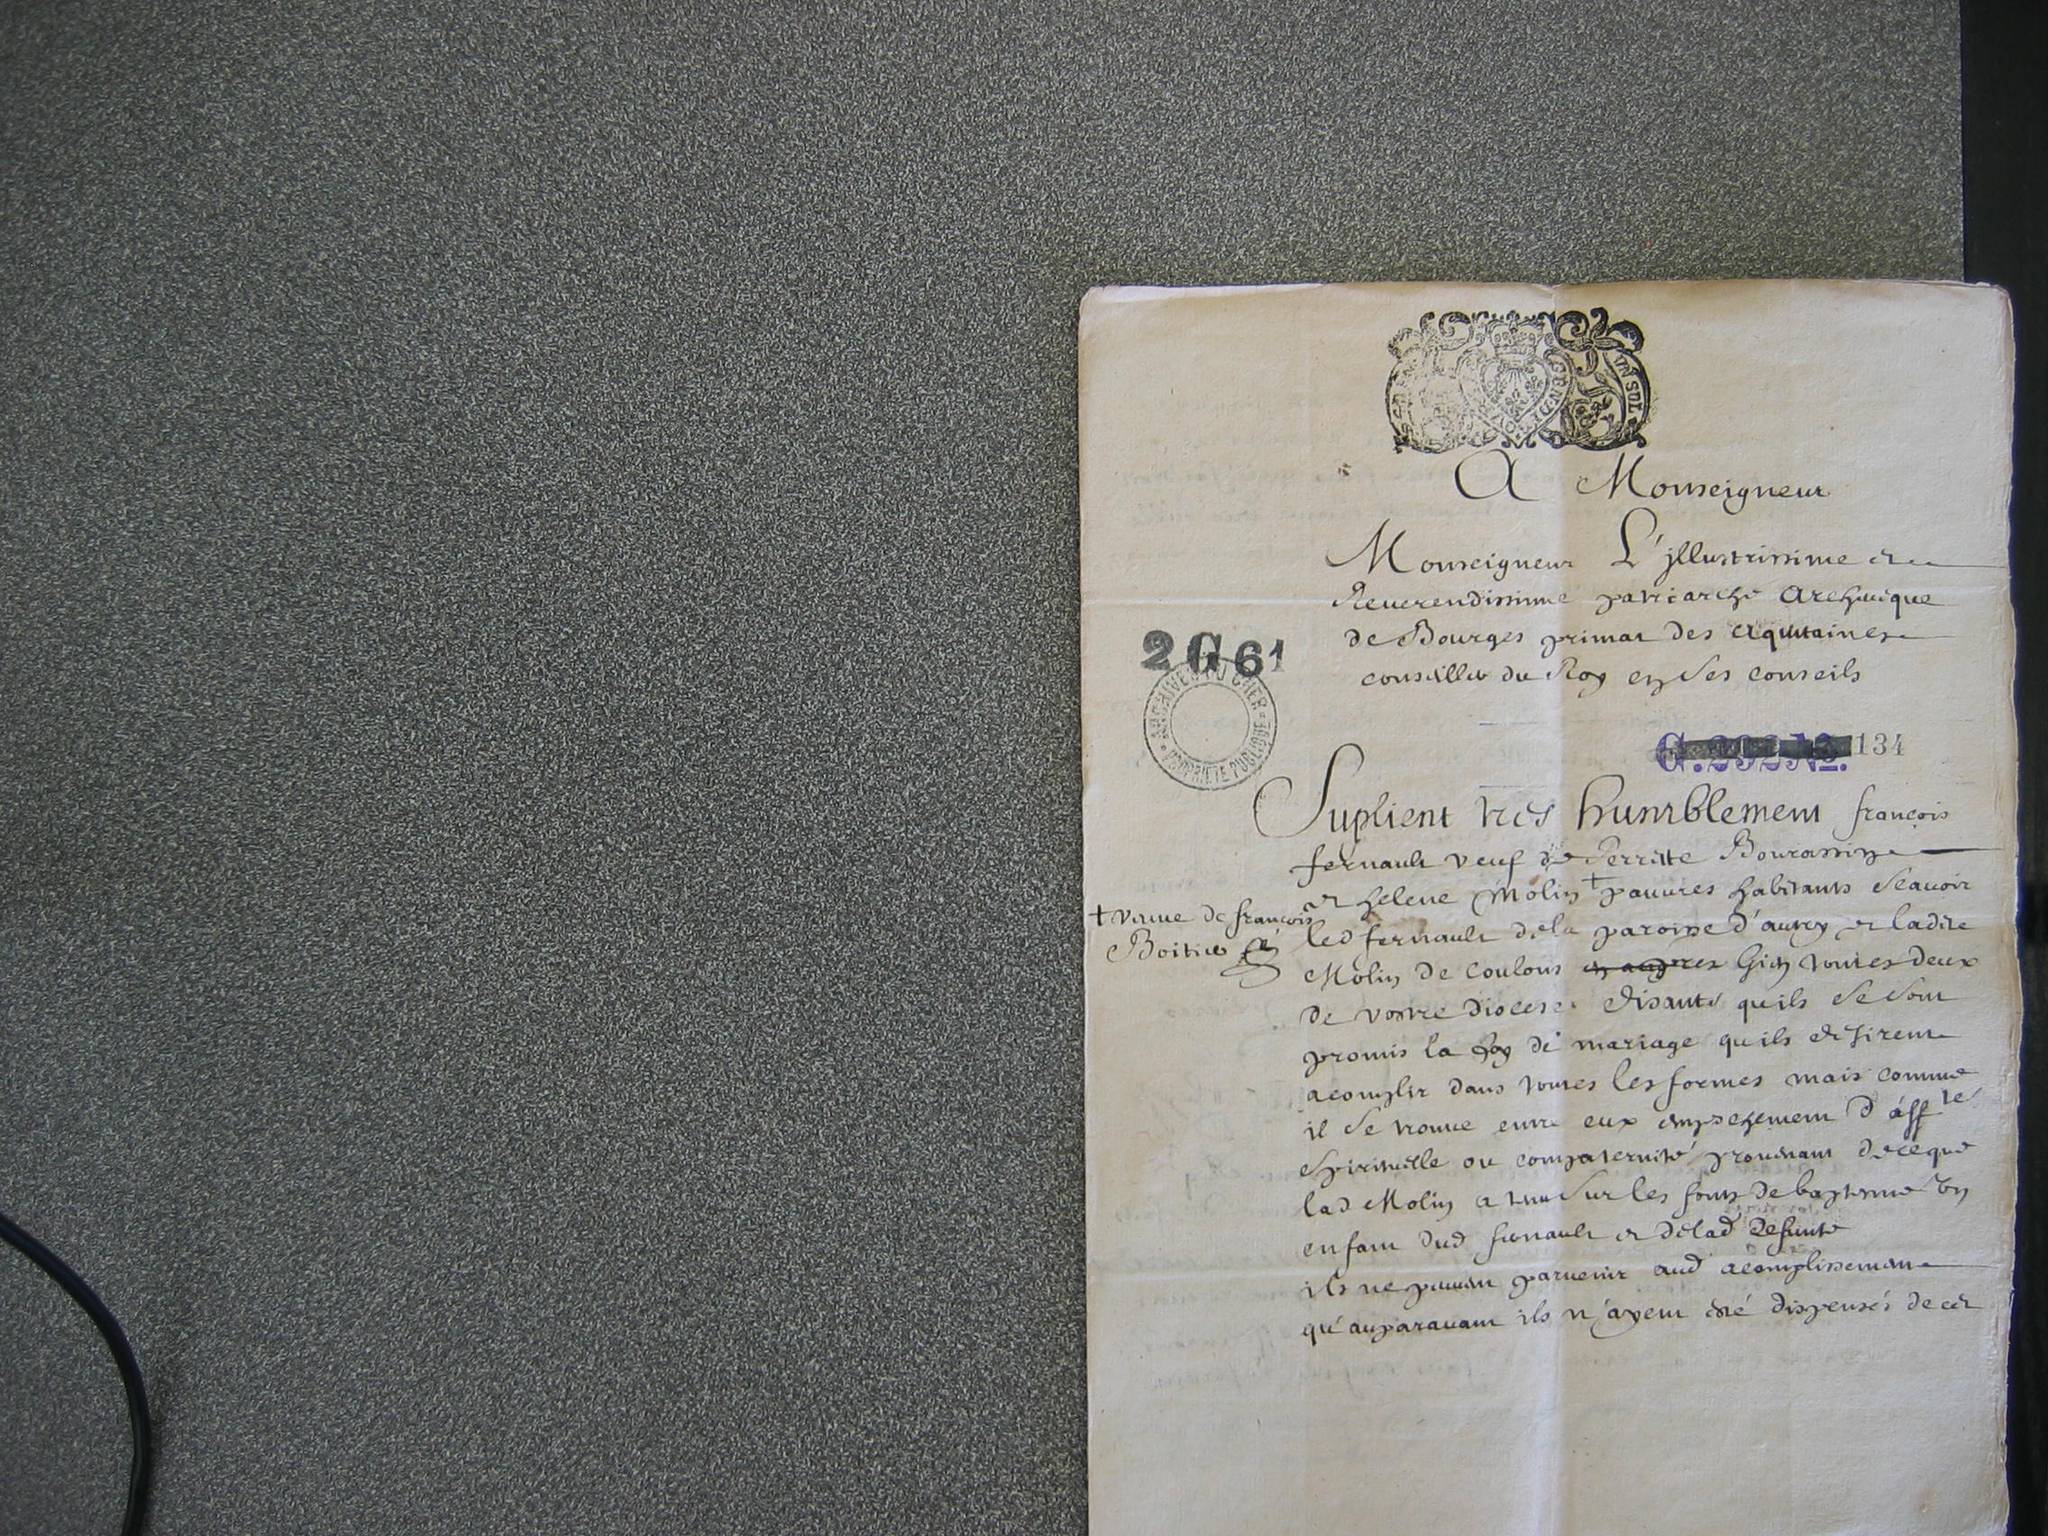 UN SOL
A Monseigneur
Monseigneur L'jllustrissime et
Reuerendissime patriarche Archeuêque
de Bourges primat des Aquitaines
conseiller du Roy en Ses conseils
2 G 61
ARCHIVES DU CHER
PROPRIETE PUBLIQUE
G. 292 No. 134
Suplient tres humblement françois
fernault veuf de Perrette Bourassin
et helene Molin + pauures habitants Scauoir
+ veuue de françois
Boitier
led fernault dela paroisse d'autry et ladite
Molin de Coulons Gien toutes deux
de vostre diocese disants quils Se Sont
promis la foy de mariage quils desirent
acomplir dans toutes les formes mais comme
il Se trouue entre eux empechement d'aff.te
Spirituelle ou compaternité prouenant de ce que
lad Molin a tenu Sur les fonts de baptesme un
enfant dud fernault et delad defunte
ils ne peuuent paruenir aud acomplissement
qu'auparauant ils n'ayent esté dispensés de cet